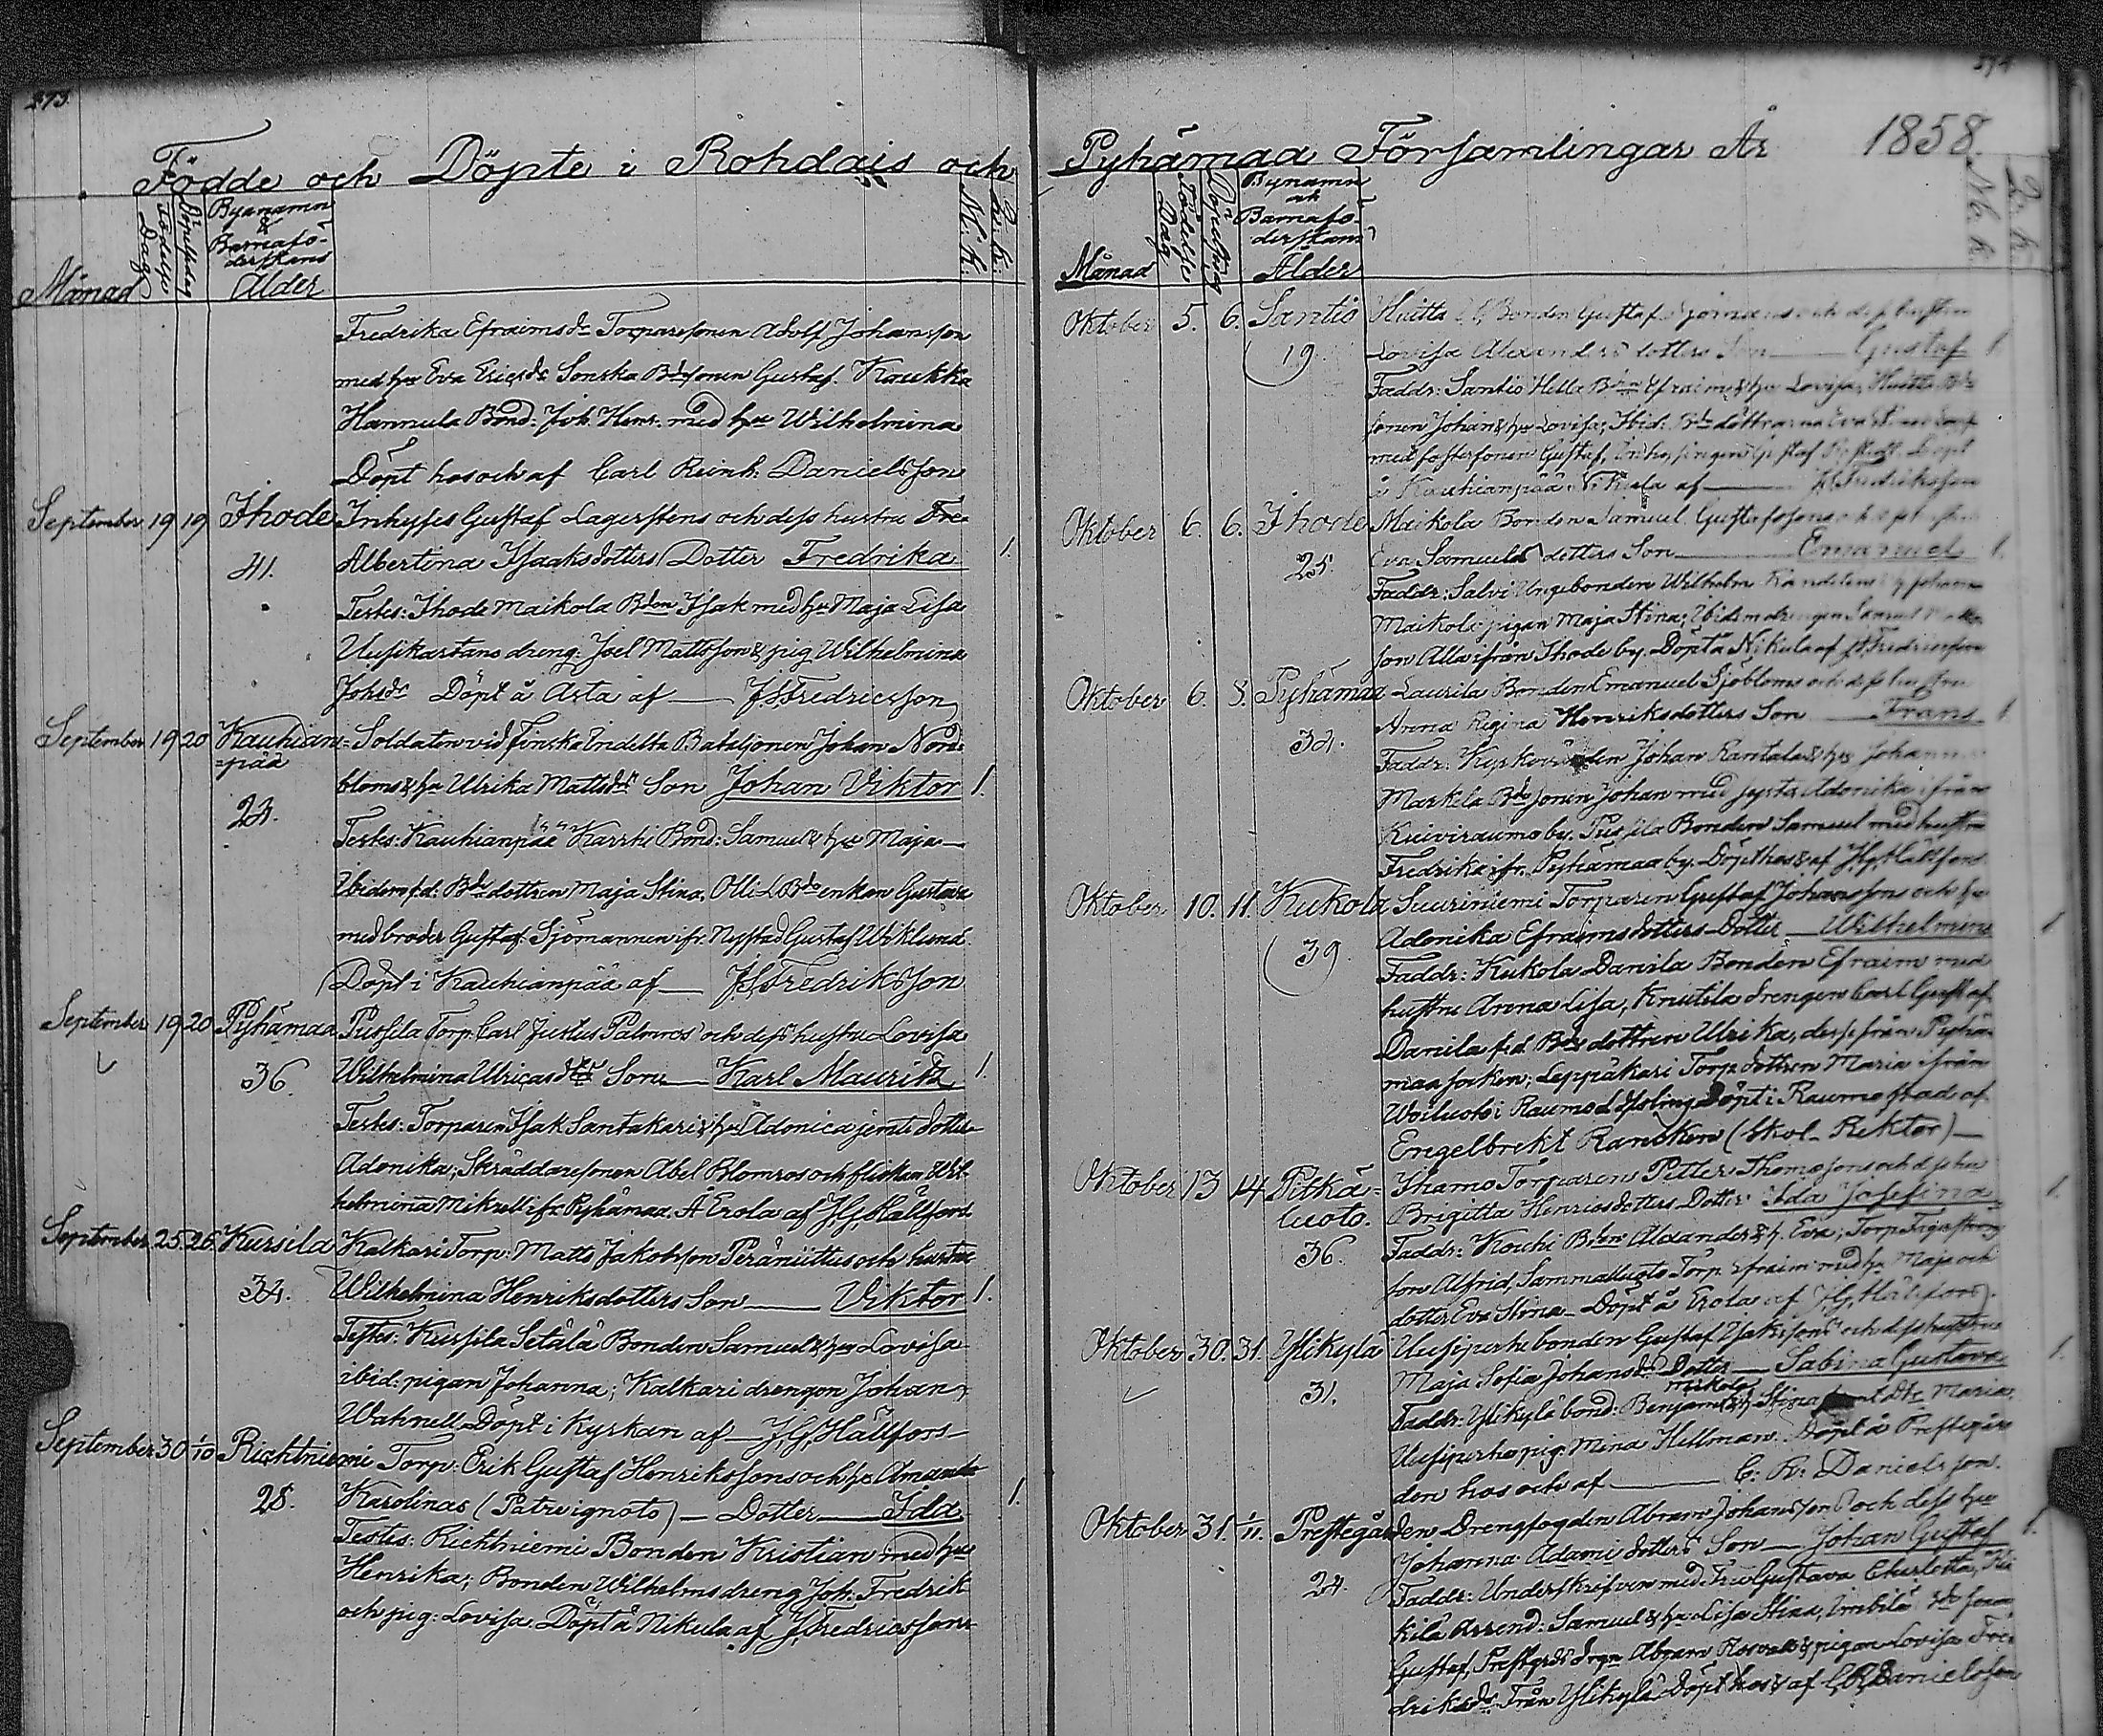 273.
Födde och Döpte i Rohdais och
Månad
Födelse Dag
Döpelsedag
Byanamn & Barnafö-
derskans
Ålder
M. k.
Qv. k.
Fredrika Efraimsdr Torparesonen Adolf Johansson
med hu Eva Ericsdr Sonska Bdesonen Gustaf. Kaukka
Hannula Bond: Joh. Henr. med hu Wilhelmina
Döpt hos och af Carl Reinh. Danielsson
September 19 19 Ihode Inhyses Gustaf Lagerstens och dess hustru Fre-
41. Albertina Isaksdotters Dotter Fredrika 1.
Testes: Ihode Maikola Bden Isak med hu Maja Lisa
Uusikartano dreng: Joel Mattsson & pig Wilhelmina
Johsdr Döpt å Arta af — J. Fredricsson
September 19 20 Kauhian= Soldaten vid Finska Indelta Bataljonen Johan Nord-
=pää bloms & hu Ulrika Mattsdrs Son Johan Viktor 1.
24.
Testes: Kauhianpää Karrhi Bond: Samuel & hu Maja —
Ibidem f.d: Bdedottren Maja Stina, Olli Bdeenkan Gustava
med broder Gustaf. Sjömannen ifr. Nystad Gustaf Wiklund.
Döpt i Kauhianpää af — J. Fredriksson
September 19 20 Pyhämaa Pussila Torp: Carl Justus Palmros' och dess hustru Lovisa
36 Wilhelmina Ulricasdtrs Son — Karl Maurits 1.
Testes: Torparen Isak Santakari & hu Adonica jemte dotter
Adonika; Skräddaresonen Abel Blomros och flickan Wil-
helmina Mikrell ifr Pyhämaa. Å Erola af J. G. Hällfors.
September 25 26 Kursila Kalkari Torp: Matts Jakobsson Perämiittus och hustru
34. Wilhelmina Henriksdotters Son — Viktor 1.
Testes: Kursila Setälä Bonden Samuel & hu Lovisa
ibid: pigan Johanna; Kalkari drengen Johan
Wahnell Döpt i Kyrkan af — J. G. Hällfors —
September 30 1/10 Riahtniemi Torp: Erik Gustaf Henrikssons och hu Amanda
28. Karolinas (Patre ignoto) — Dotter — Ida 1.
Testes: Riehtniemi Bonden Kristian med hu
Henrika; Bonden Wilhelms dreng Joh. Fredrik
och pig: Lovisa. Döpt å Nikula af J. Fredricsson
Pyhämaa Församlingar År 1858.
Månad
Födelse Dag
Byanamn
och
Barnafö-
derskans
Ålder
M. k.
Q. k.
Oktober 5. 6. Santio Huitti Bonden Gustaf och dess hustru
19. Lovisa Alexandersdotters Son — Gustaf 1
Faddr: Santio Hella Bden Efraim & hu Lovisa, Huitti Bde
sonen Johan & hu Lovisa; Ibid: Bdedöttrarna Eva
med fostersonen Gustaf, Gustaf Döpt
i Kauhianpää Nikula af — J. Fredriksson
Oktober 6. 6. Ihode Maikola Bonden Samuel Gustafssons
25. Eva Samuelsdotters Son — Emanuel 1.
Faddr: Salvi Ungebonden Wilhelm Johanna
Maikola pigan Maja Stina; Ibidem drengen Samuel
son Alla ifrån Ihode by. Döpt å Nikula af J. Fredricsson
Oktober 6. 8. Pyhämaa Laurila Bonden Emanuel Sjöbloms och dess hustru
34. Anna Regina Henriksdotters Son — Frans 1
Faddr: Johan Rantala & hu Johanna
Markela Bdesonen Johan med syster Adonika ifrån
Kuiviraumo by. Pussila Bonden Samuel med hustru
Fredrika ifr. Pyhämaa by. Döpt hos & af J. G. Hällfors
Oktober 10. 11. Kukola Suuriniemi Torparen Gustaf Johanssons och hu
39. Adonika Efraimsdotters Dotter — Wilhelmina 1
Faddr: Kukola Danila Bonden Efraim med
hustru Anna Lisa, Knutila drengen Carl Gustaf.
Danila f.d Bdedottren Ulrika, dess från Pyhä-
maa socken; Leppäkari Torp dottren Maria ifrån
Woiluoto i Raumo Döpt i Raumo stad af
Engelbrekt Rancken (Skol-Rektor) —
Oktober 13 14 Pitkä= Ihamo Torparen Petter Thomassons och dess hu
luoto. Brigitta Henricsdotters Dotter Ida Josefina 1.
36. Faddr: Kouhi Bden Alexander & h. Eva; Torp
son Alfrid, Sammalluoto Torp. Efraim med hu Maja och
dotter Eva Stina — Döpt å Erola af J. G. Hällfors
Oktober 30. 31. Ylikylä Uusiperhe bonden Gustaf Isakssons och dess hustru
31. Maja Sofia Johansdrs Dotter — Sabina Gustava 1.
Mikola
Faddr: Ylikylä bond: Benjam & h. Stina dtr Maria.
Uusiperhe pig: Mina Hellman: Döpt å Prestegår-
den hos och af — C. R. Danielsson.
Oktober 31. 1/11. Prestegården Drengfogden Abram Johanssons och dess hu
24. Johanna Adamsdotters Son — Johan Gustaf 1.
Faddr: Underskrifven med Fru Gustava Charlotta,
kilä Arrend: Samuel & hu Lisa Stina,
Gustaf, Prestgrds drgn Abram & pigan Lovisa Fre-
driksdr från Ylikylä Döpt hos & af C. R. Danielsson